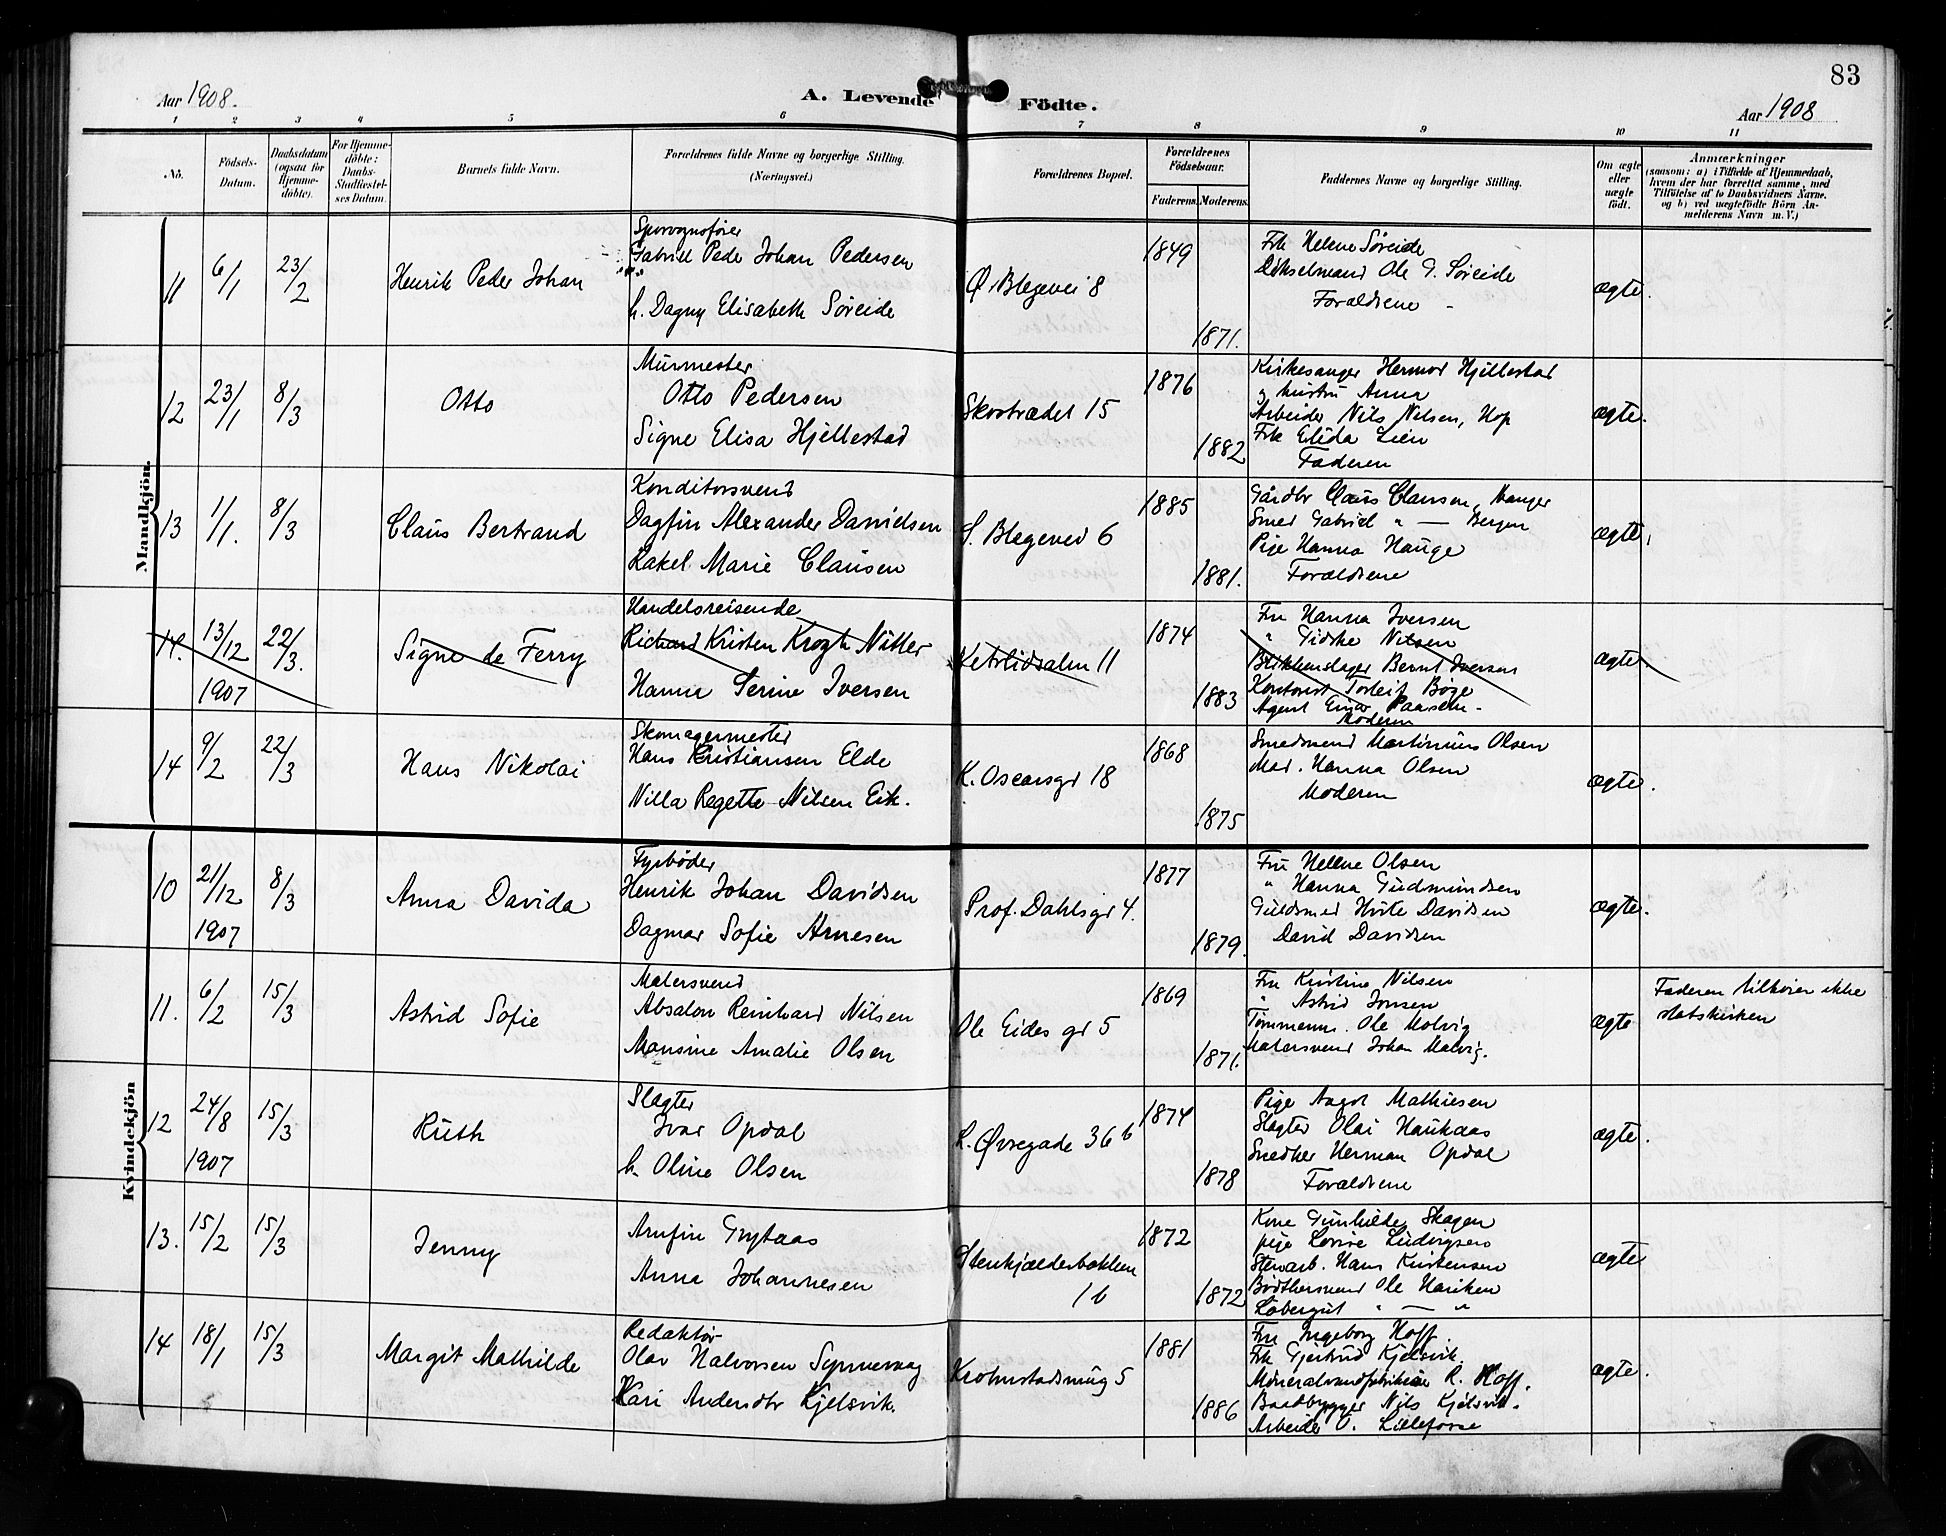 83
Aar 1908.
A. Levende Födte.
Aar 1908
1 2 3 4 5 6 7 8 9 10 11
No.
Födsels-Datum.
Daabsdatum (ogsaa for Hjemme-döbte).
For Hjemme-döbte: Daabs-Stadfæstel-ses Datum.
Barnets fulde Navn.
Forældrenes fulde Navne og borgerlige Stilling.
(Næringsvei.)
Forældrenes Bopæl.
Forældrenes Födselsaar.
Faderens. Moderens.
Faddernes Navne og borgerlige Stilling.
Om ægte eller uægte födt.
Anmærkninger
(saasom: a) i Tilfælde af Hjemmedaab,
hvem der har forrettet samme, med
Tilföielse af to Daabsvidners Navne.
og b) ved uægtefödte Börn An-
melderens Navn m. V.)
Mandkjön.
11 6/1 23/2 Henrik Peder Johan
Sporvognsfører
Gabriel Peder Johan Pedersen
h. Dagny Elisabeth Søreide
Ø. Blegevei 8
1849
1871.
Frk Helene Søreide
Ole G. Søreide
Forældrene
ægte.
12 23/1 8/3 Otto
Murmester
Otto Pedersen
Signe Elisa Hjellestad
Skostrædet 15
1876
1882
Kirkesanger Hermod Hjellestad
og hustru Anna
Arbeider Nils Nilsen, Hop
Frk Elida Lien
Faderen
ægte.
13 1/1. 8/3 Claus Bertrand
Konditorsvend
Dagfin Alexander Davidsen
Rakel Marie Clausen
S. Blegevei 6
1885
1881.
Gårdbr Claus Clausen, Manger
Smed Gabriel " — Bergen
Pige Hanna Hauge
Forældrene
ægte
14. 13/12 1907 22/3. Signe de Ferry
Handelsreisende
Richard Kristen Krogh Nitter
Hanna Serine Iversen
11
1874
1883
Fru Hanna Iversen
" Gidske Nilsen
Blikkenslager Bernt Iversen
Kontorist Torleif Bøge
Agent Einar
Moderen
ægte
14 9/2 22/3 Hans Nikolai
Skomagermester
Hans Kristiansen Elde
Villa Regette Nilsen Eik.
K. Oscarsgt 18
1868
1875
Smedsvend Martinius Olsen
Mad. Hanna Olsen
Moderen
ægte.
Kvindekjön
10 21/12 1907 8/3 Anna Davida
Fyrbøder
Henrik Johan Davidsen
Dagmar Sofie Arnesen
Prof. Dahlsgt 4.
1877
1879.
Fru Helene Olsen
" Hanna Gudmundsen
Guldsmed Hvite Davidsen
David Davidsen
ægte.
11. 6/2 15/3 Astrid Sofie
Malersvend
Absalon Reinhard Nilsen
Monsine Amalie Olsen
Ole Eides gt 5
1869
1871.
Fru Kristine Nilsen
" Astrid Jonsen
Tømmerm. Ole Molvig
Malersvend Johan Malvig.
ægte
Faderen tilhører ikke
statskirken
12 24/8 1907 15/3 Ruth
Slagter
Ivar Opdal
h. Oline Olsen
L. Øvregade 36 b
1874
1878
Pige Aagot Mathiesen
Slagter Olai Haukaas
Snedker Herman Opdal
Forældrene
ægte.
13. 15/2 15/3 Jenny
Arnfin Grytaas
Anna Johannesen
Stenkjælderbakken
1 b
1872
1872
Kone Gunhilde Skagen
pige Lovise Ludvigsen
Stenarb. Hans Kristensen
Bødkersvend Ole Hauken
Løbergut " — "
ægte
14 18/1 15/3 Margit Mathilde
Redaktør
Olav Halvorsen Synnevaag
Kari Andersdtr Kjelsvik.
Krohnstadsmug 5
1881
1886
Fru Ingeborg Hoff.
Frk Gjertrud Kjelsvik.
Mineralvandfabrikør R. Hoff.
Baadbygger Nils Kjelsvik.
Arbeider O. Lillefosse
ægte.